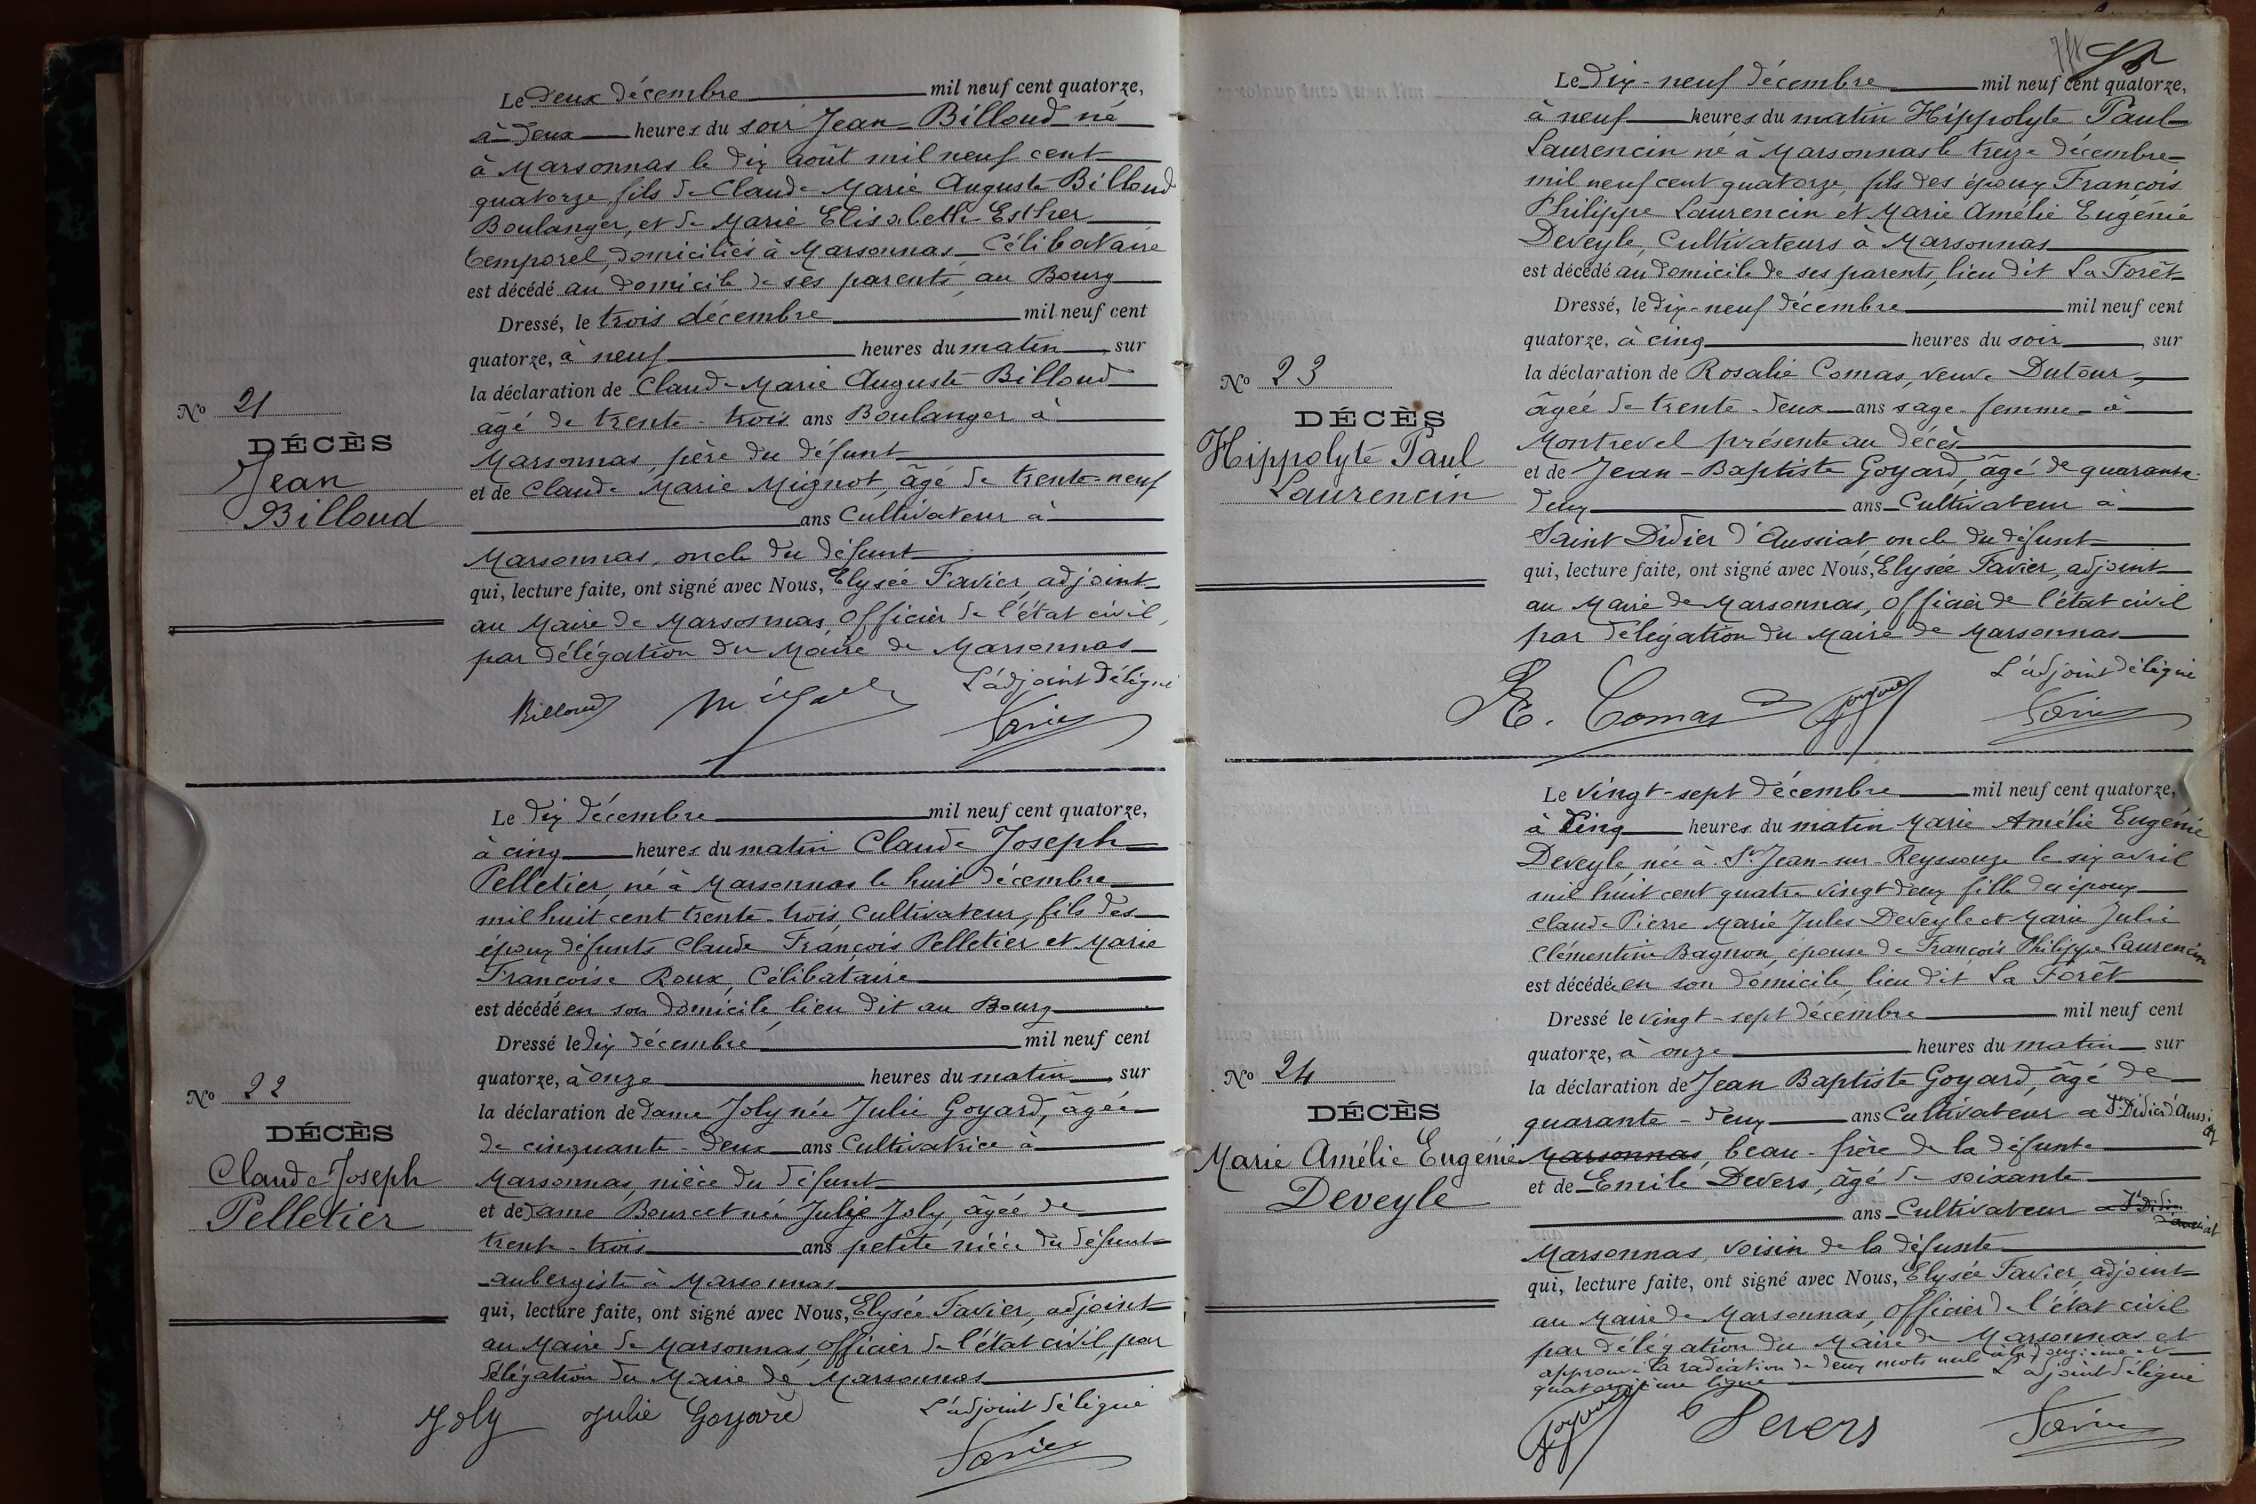 Le Deux décembre mil neuf cent quatorze,
à Deux heures du soir Jean Billoud né
à Marsonnas le dix août mil neuf cent
quatorze, fils de Claude Marie Auguste Billoud
Boulanger, et de Marie Elisabeth Esther
Temporel, domiciliés à Marsonnas Célibataire
est décédé au domicile de ses parents, au Bourg
Dressé, le trois décembre mil neuf cent
quatorze, à neuf heures du matin, sur
la déclaration de Claude Marie Auguste Billoud
âgé de trente-trois ans Boulanger à
Marsonnas, père du défunt
et de Claude Marie Mignot, âgé de trente-neuf
ans Cultivateur à
Marsonnas, oncle du défunt
qui, lecture faite, ont signé avec Nous, Elysée Favier, adjoint
au Maire de Marsonnas, Officier de l'état civil,
par délégation du Maire de Marsonnas
L'adjoint délégué
Billoud Favier
No 21
DÉCÈS
Jean
Billoud
Le dix décembre mil neuf cent quatorze,
à cinq heures du matin Claude Joseph
Pelletier, né à Marsonnas le huit décembre
mil huit cent trente-trois, Cultivateur, fils des
époux défunts Claude François Pelletier et Marie
Françoise Roux, Célibataire
est décédé en son domicile, lieu dit au Bourg
Dressé le dix décembre mil neuf cent
quatorze, à onze heures du matin, sur
la déclaration de dame Joly née Julie Goyard, âgée
de cinquante-deux ans Cultivatrice à
Marsonnas, nièce du défunt
et de Dame Bourcet née Julie Joly, âgée de
trente-trois ans petite nièce du défunt
aubergiste à Marsonnas
qui, lecture faite, ont signé avec Nous, Elysée Favier, adjoint
au Maire de Marsonnas, officier de l'état civil, par
délégation du Maire de Marsonnas
L'adjoint délégué
Joly Julie Goyard
Favier
No 22
DÉCÈS
Claude Joseph
Pelletier
Le Dix-neuf décembre mil neuf cent quatorze,
à neuf heures du matin Hippolyte Paul
Laurencin né à Marsonnas le treize décembre
mil neuf cent quatorze, fils des époux François
Philippe Laurencin et Marie Amélie Eugénie
Deveyle, Cultivateurs à Marsonnas
est décédé au domicile de ses parents, lieu dit La Forêt
Dressé, le dix-neuf décembre mil neuf cent
quatorze, à cinq heures du soir, sur
la déclaration de Rosalie Comas, veuve Dutour,
âgée de trente-deux ans sage-femme à
Montrevel présente au décès
et de Jean-Baptiste Goyard, âgé de quarante-
deux ans Cultivateur à
Saint Didier d'Aussiat oncle du défunt
qui, lecture faite, ont signé avec Nous, Elysée Favier, adjoint
au Maire de Marsonnas, Officier de l'état civil
par délégation du Maire de Marsonnas
L'adjoint délégué
R. Comas Goyard Favier
No 23
DÉCÈS
Hippolyte Paul
Laurencin
Le vingt-sept décembre mil neuf cent quatorze,
à cinq heures du matin Marie Amélie Eugénie
Deveyle, née à St Jean-sur-Reyssouze le six avril
mil huit cent quatre vingt deux fille des époux
Claude Pierre Marie Jules Deveyle et Marie Julie
Clémentine Bagnon, épouse de François Philippe Laurencin
est décédée en son domicile, lieu dit La Forêt
Dressé le vingt-sept décembre mil neuf cent
quatorze, à onze heures du matin sur
la déclaration de Jean Baptiste Goyard, âgé de
quarante-deux ans Cultivateur à St Didier d'Aussiat
Marsonnas, beau-frère de la défunte
et de Emile Devers, âgé de soixante
ans Cultivateur à St Didier d'Aussiat
Marsonnas, voisin de la défunte
qui, lecture faite, ont signé avec Nous, Elysée Favier, adjoint
au Maire de Marsonnas, Officier de l'état civil
par délégation du Maire de Marsonnas et
approuvé la radiation de deux mots nuls à la douzième et
quatorzième ligne L'adjoint délégué
Goyard Devers Favier
No 24
DÉCÈS
Marie Amélie Eugénie
Deveyle